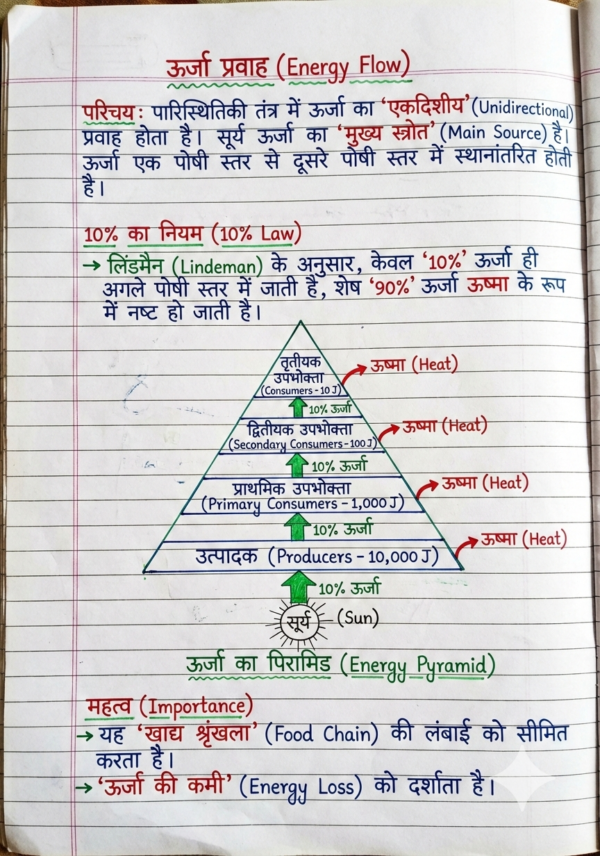 ऊर्जा प्रवाह (Energy Flow)
परिचय: पारिस्थितिकी तंत्र में ऊर्जा का 'एकदिशीय' (Unidirectional)
प्रवाह होता है। सूर्य ऊर्जा का 'मुख्य स्त्रोत' (Main Source) है।
ऊर्जा एक पोषी स्तर से दूसरे पोषी स्तर में स्थानांतरित होती
है।
10% का नियम (10% Law)
→ लिंडमैन (Lindeman) के अनुसार, केवल '10%' ऊर्जा ही
अगले पोषी स्तर में जाती है, शेष '90%' ऊर्जा ऊष्मा के रूप
में नष्ट हो जाती है।
तृतीयक
उपभोक्ता
(Consumers - 10 J)
ऊष्मा (Heat)
10% ऊर्जा
द्वितीयक उपभोक्ता
(Secondary Consumers - 100 J)
ऊष्मा (Heat)
10% ऊर्जा
प्राथमिक उपभोक्ता
(Primary Consumers - 1,000 J)
ऊष्मा (Heat)
10% ऊर्जा
उत्पादक (Producers - 10,000 J)
ऊष्मा (Heat)
10% ऊर्जा
सूर्य (Sun)
ऊर्जा का पिरामिड (Energy Pyramid)
महत्व (Importance)
→ यह 'खाद्य श्रृंखला' (Food Chain) की लंबाई को सीमित
करता है।
→ 'ऊर्जा की कमी' (Energy Loss) को दर्शाता है।